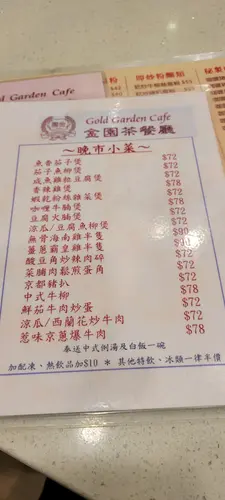 粉
$42
即炒粉麵類
$52
$51
秘製
Gold Garden Cafe
Gold Garden Cafe
金園茶餐廳
～晚市小菜～
魚香茄子煲 $72
茄子魚柳煲 $72
咸魚雞粒豆腐煲 $72
香辣雞煲 $78
蝦乾粉絲雜菜煲 $72
咖喱牛腩煲 $72
豆腐火腩煲 $72
涼瓜/豆腐魚柳煲 $72
無骨海南雞半隻
薑蔥霸皇雞半隻
酸豆角炒辣肉碎 $72
菜脯肉鬆煎蛋角 $72
京都豬扒 $72
中式牛柳 $78
鮮茄牛肉炒蛋 $72
涼瓜/西蘭花炒牛肉 $72
蔥味京蔥爆牛肉 $78
奉送中式例湯及白飯一碗
加配凍、熱飲品加$10 * 其他特飲、冰類一律半價